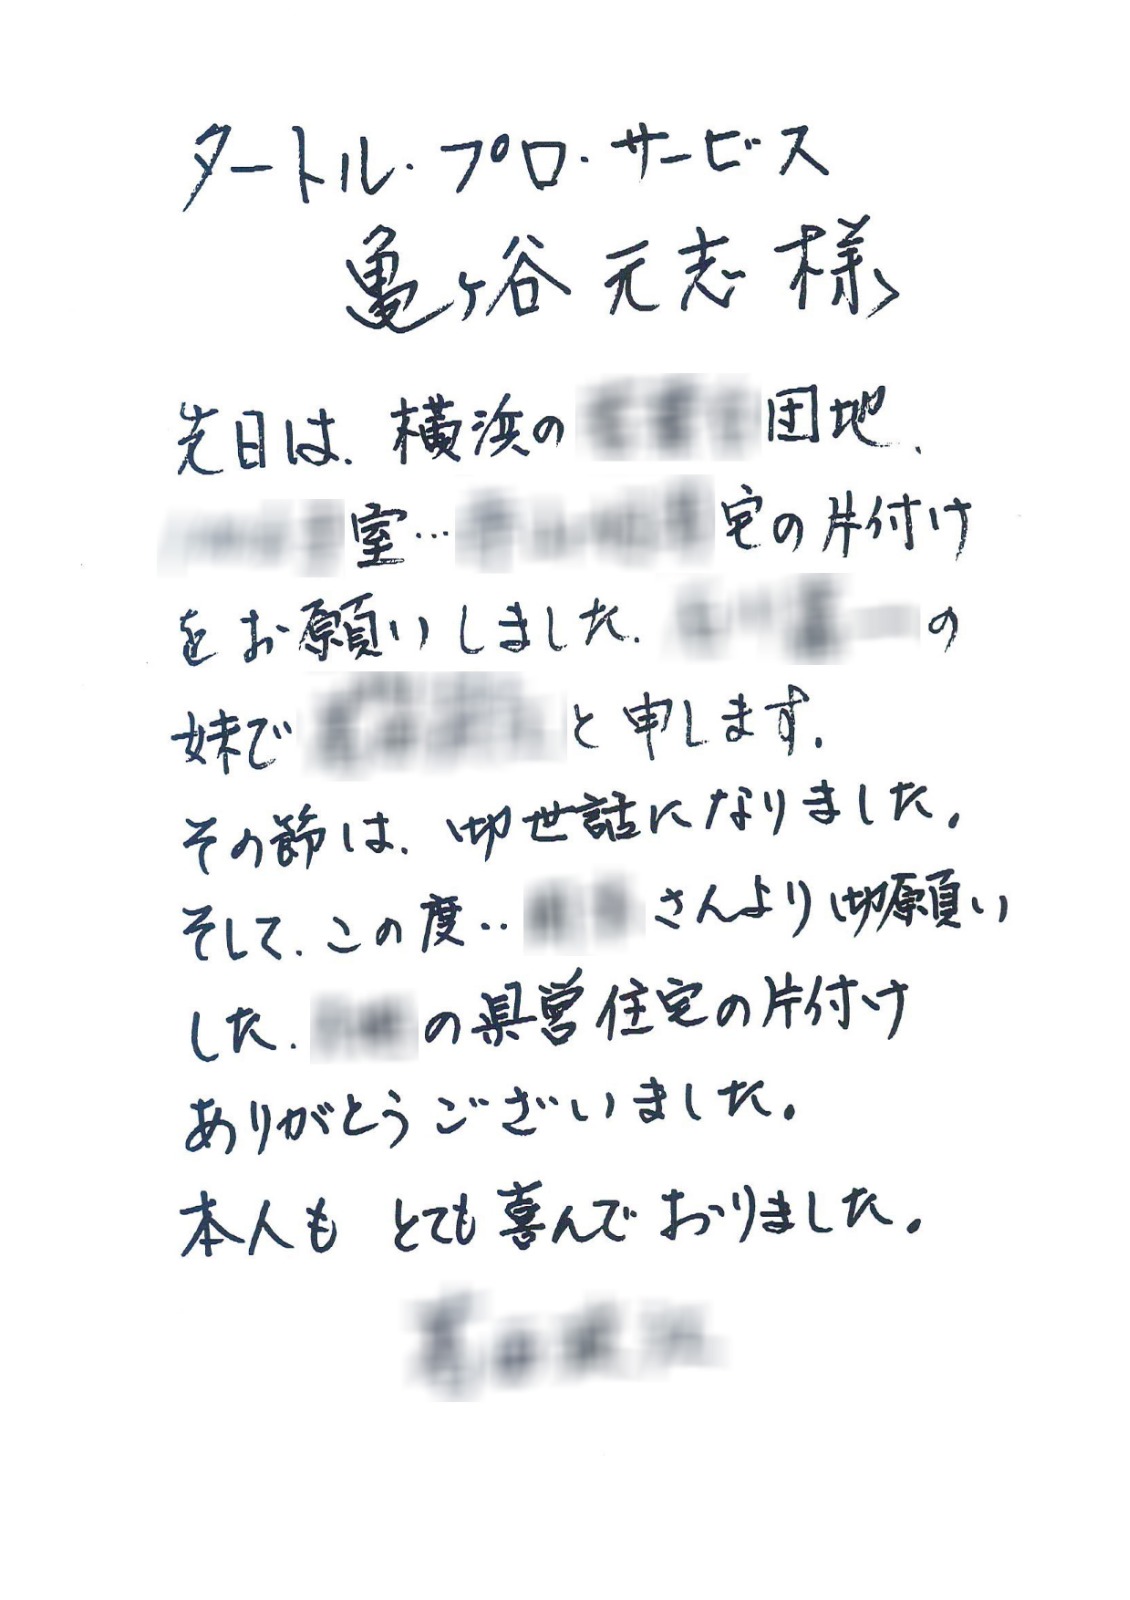 タートル・プロ・サービス
亀ヶ谷 元志 様
先日は、横浜の 団地、
室… 宅の片付け
をお願いしました。 の
妹で と申します。
その節は、御世話になりました。
そして、この度‥ さんより御願い
した、 の県営住宅の片付け
ありがとうございました。
本人も とても喜んでおりました。